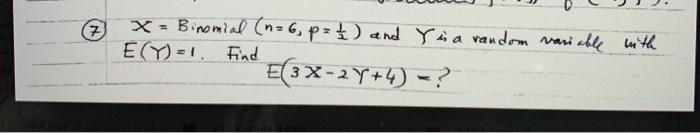 ⑦ X = Binomial (n=6, p=½) and Y is a random variable with
E(Y)=1. Find
E(3X-2Y+4) = ?